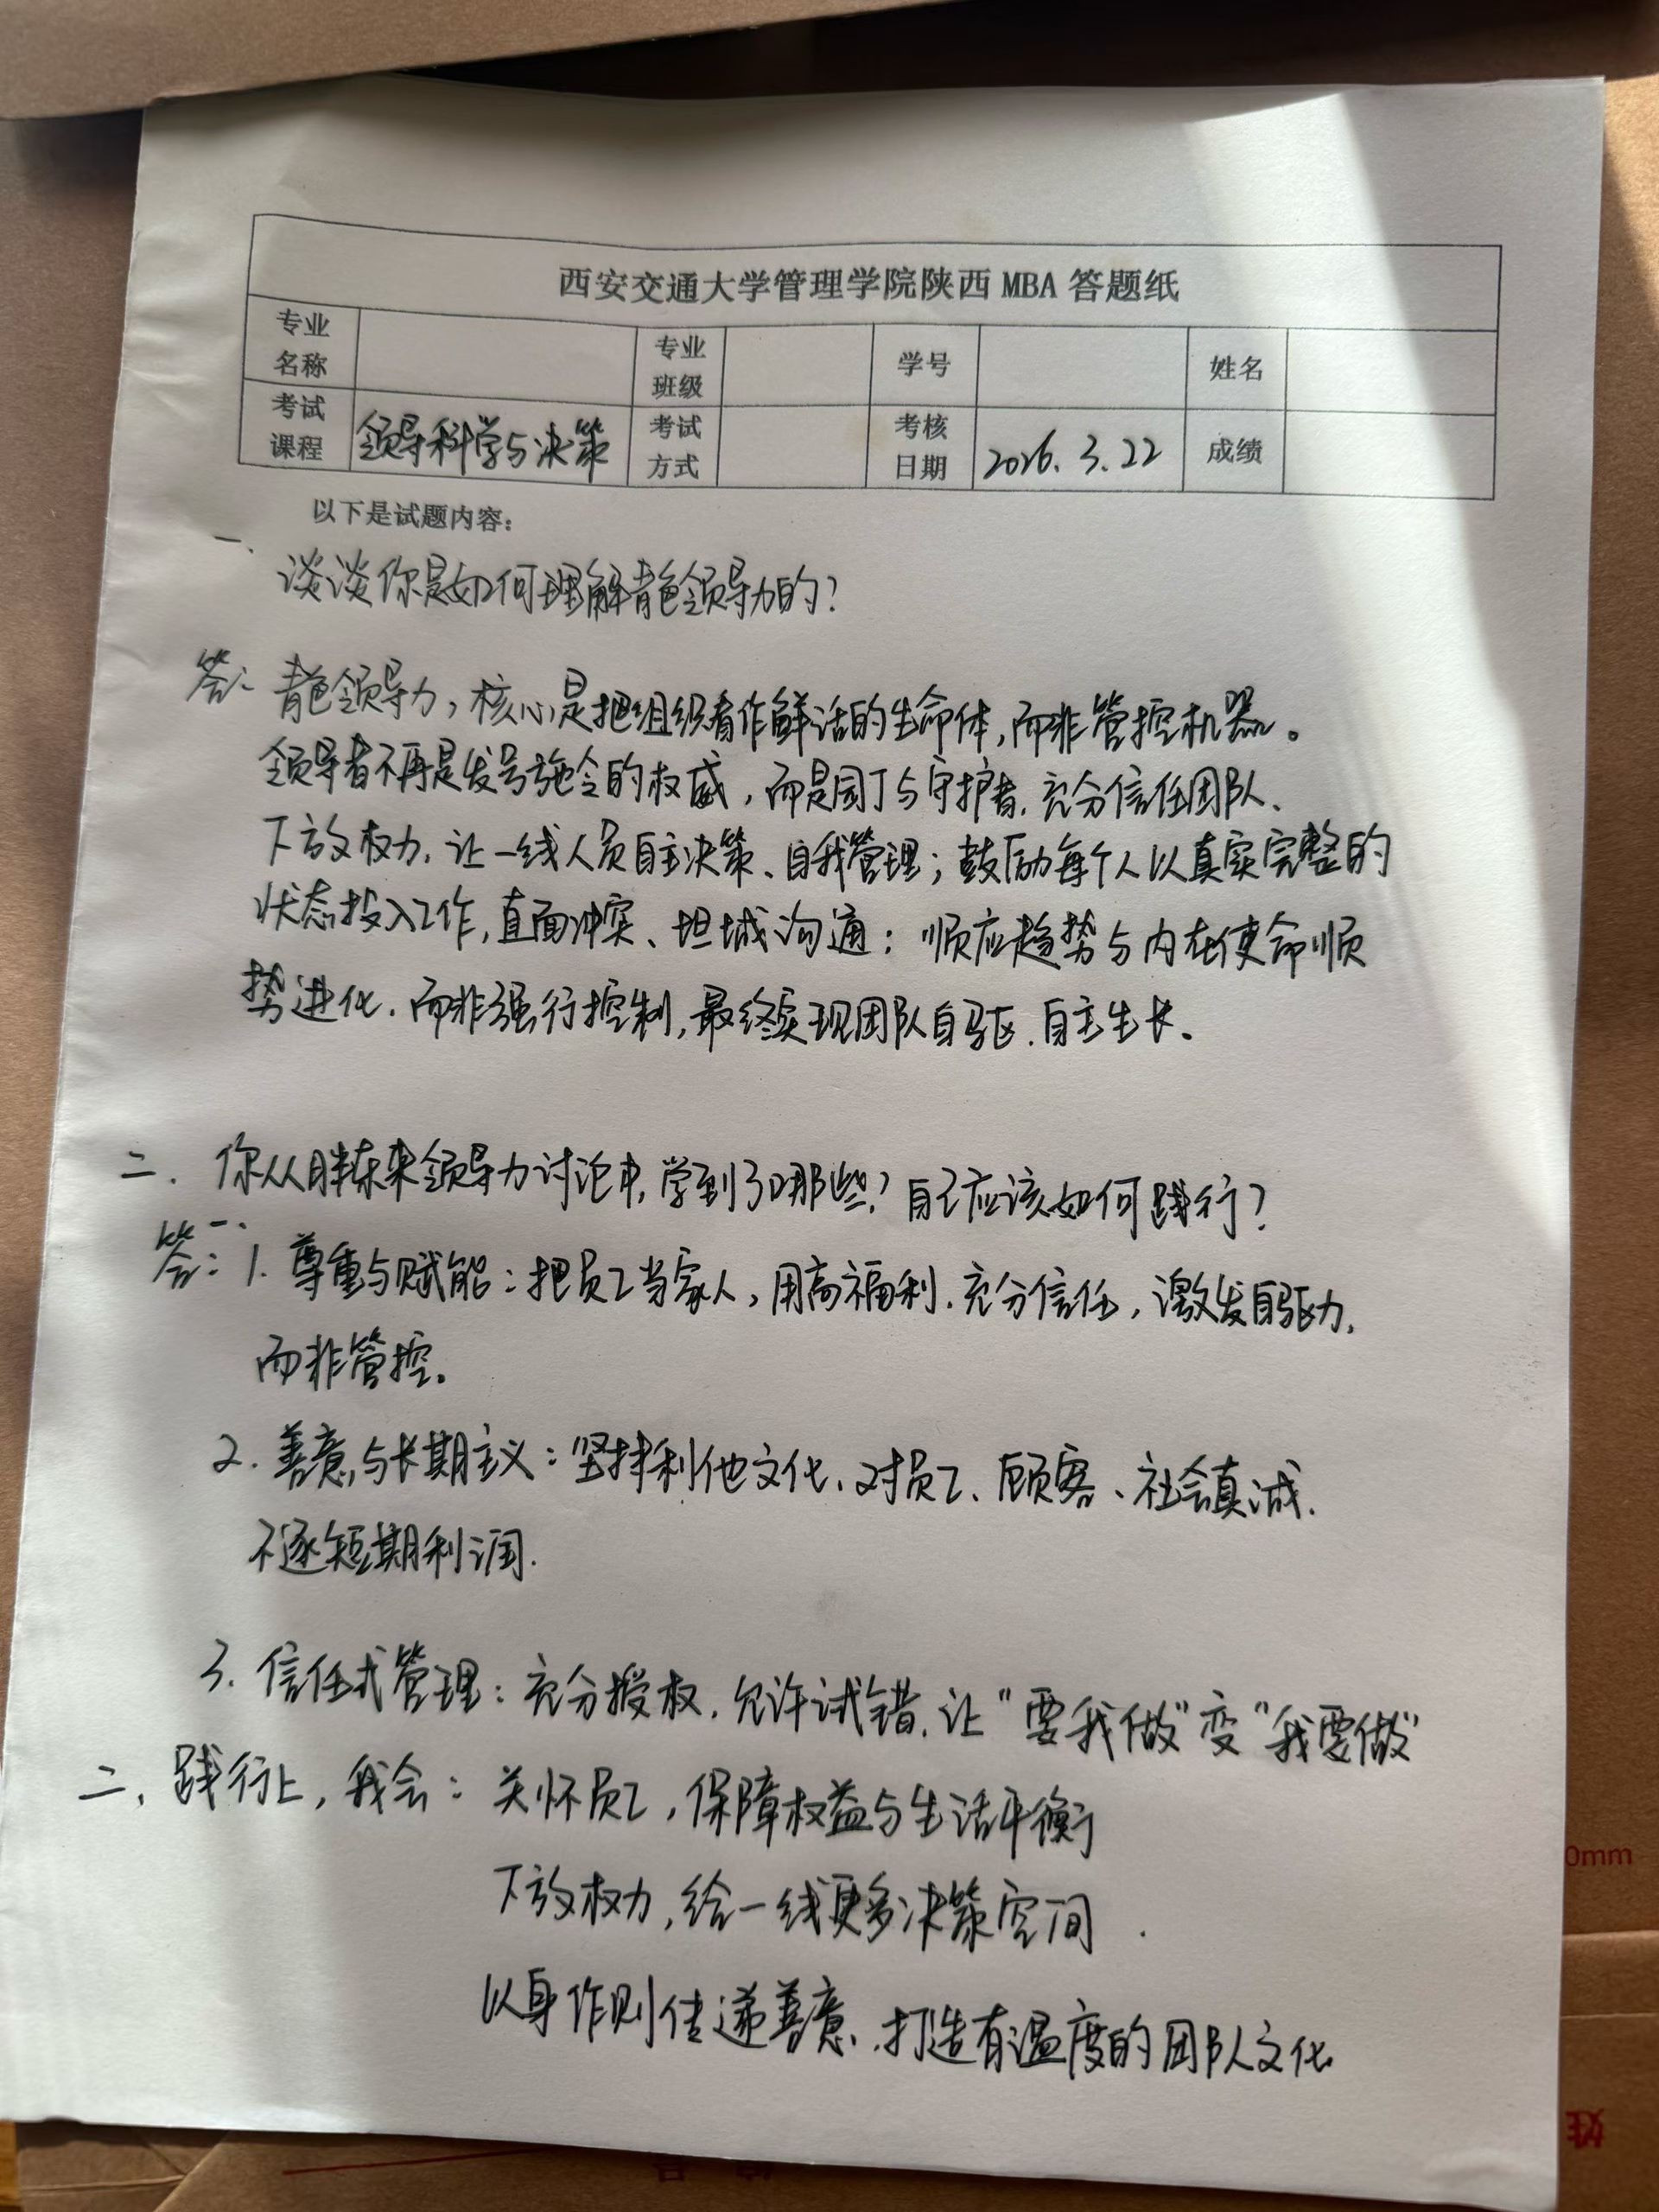 西安交通大学管理学院陕西 MBA 答题纸
专业名称 专业班级 学号 姓名
考试课程 领导科学与决策 考试方式 考核日期 2026.3.22 成绩
以下是试题内容:
一、
谈谈你是如何理解青色领导力的?
答: 青色领导力,核心是把组织看作鲜活的生命体,而非管控机器。
领导者不再是发号施令的权威,而是园丁与守护者,充分信任团队、
下放权力,让一线人员自主决策、自我管理;鼓励每个人以真实完整的
状态投入工作,直面冲突、坦诚沟通;顺应趋势与内在使命顺
势进化,而非强行控制,最终实现团队自驱、自主生长。
二. 你从胖东来领导力讨论中,学到了哪些?自己应该如何践行?
答:一、1. 尊重与赋能:把员工当家人,用高福利、充分信任,激发自驱力,
而非管控。
2. 善意与长期主义:坚持利他文化、对员工、顾客、社会真诚.
不逐短期利润.
3. 信任式管理:充分授权,允许试错,让"要我做"变"我要做"
二、践行上,我会:关怀员工,保障权益与生活平衡
下放权力,给一线更多决策空间.
以身作则传递善意、打造有温度的团队文化
0mm
姓